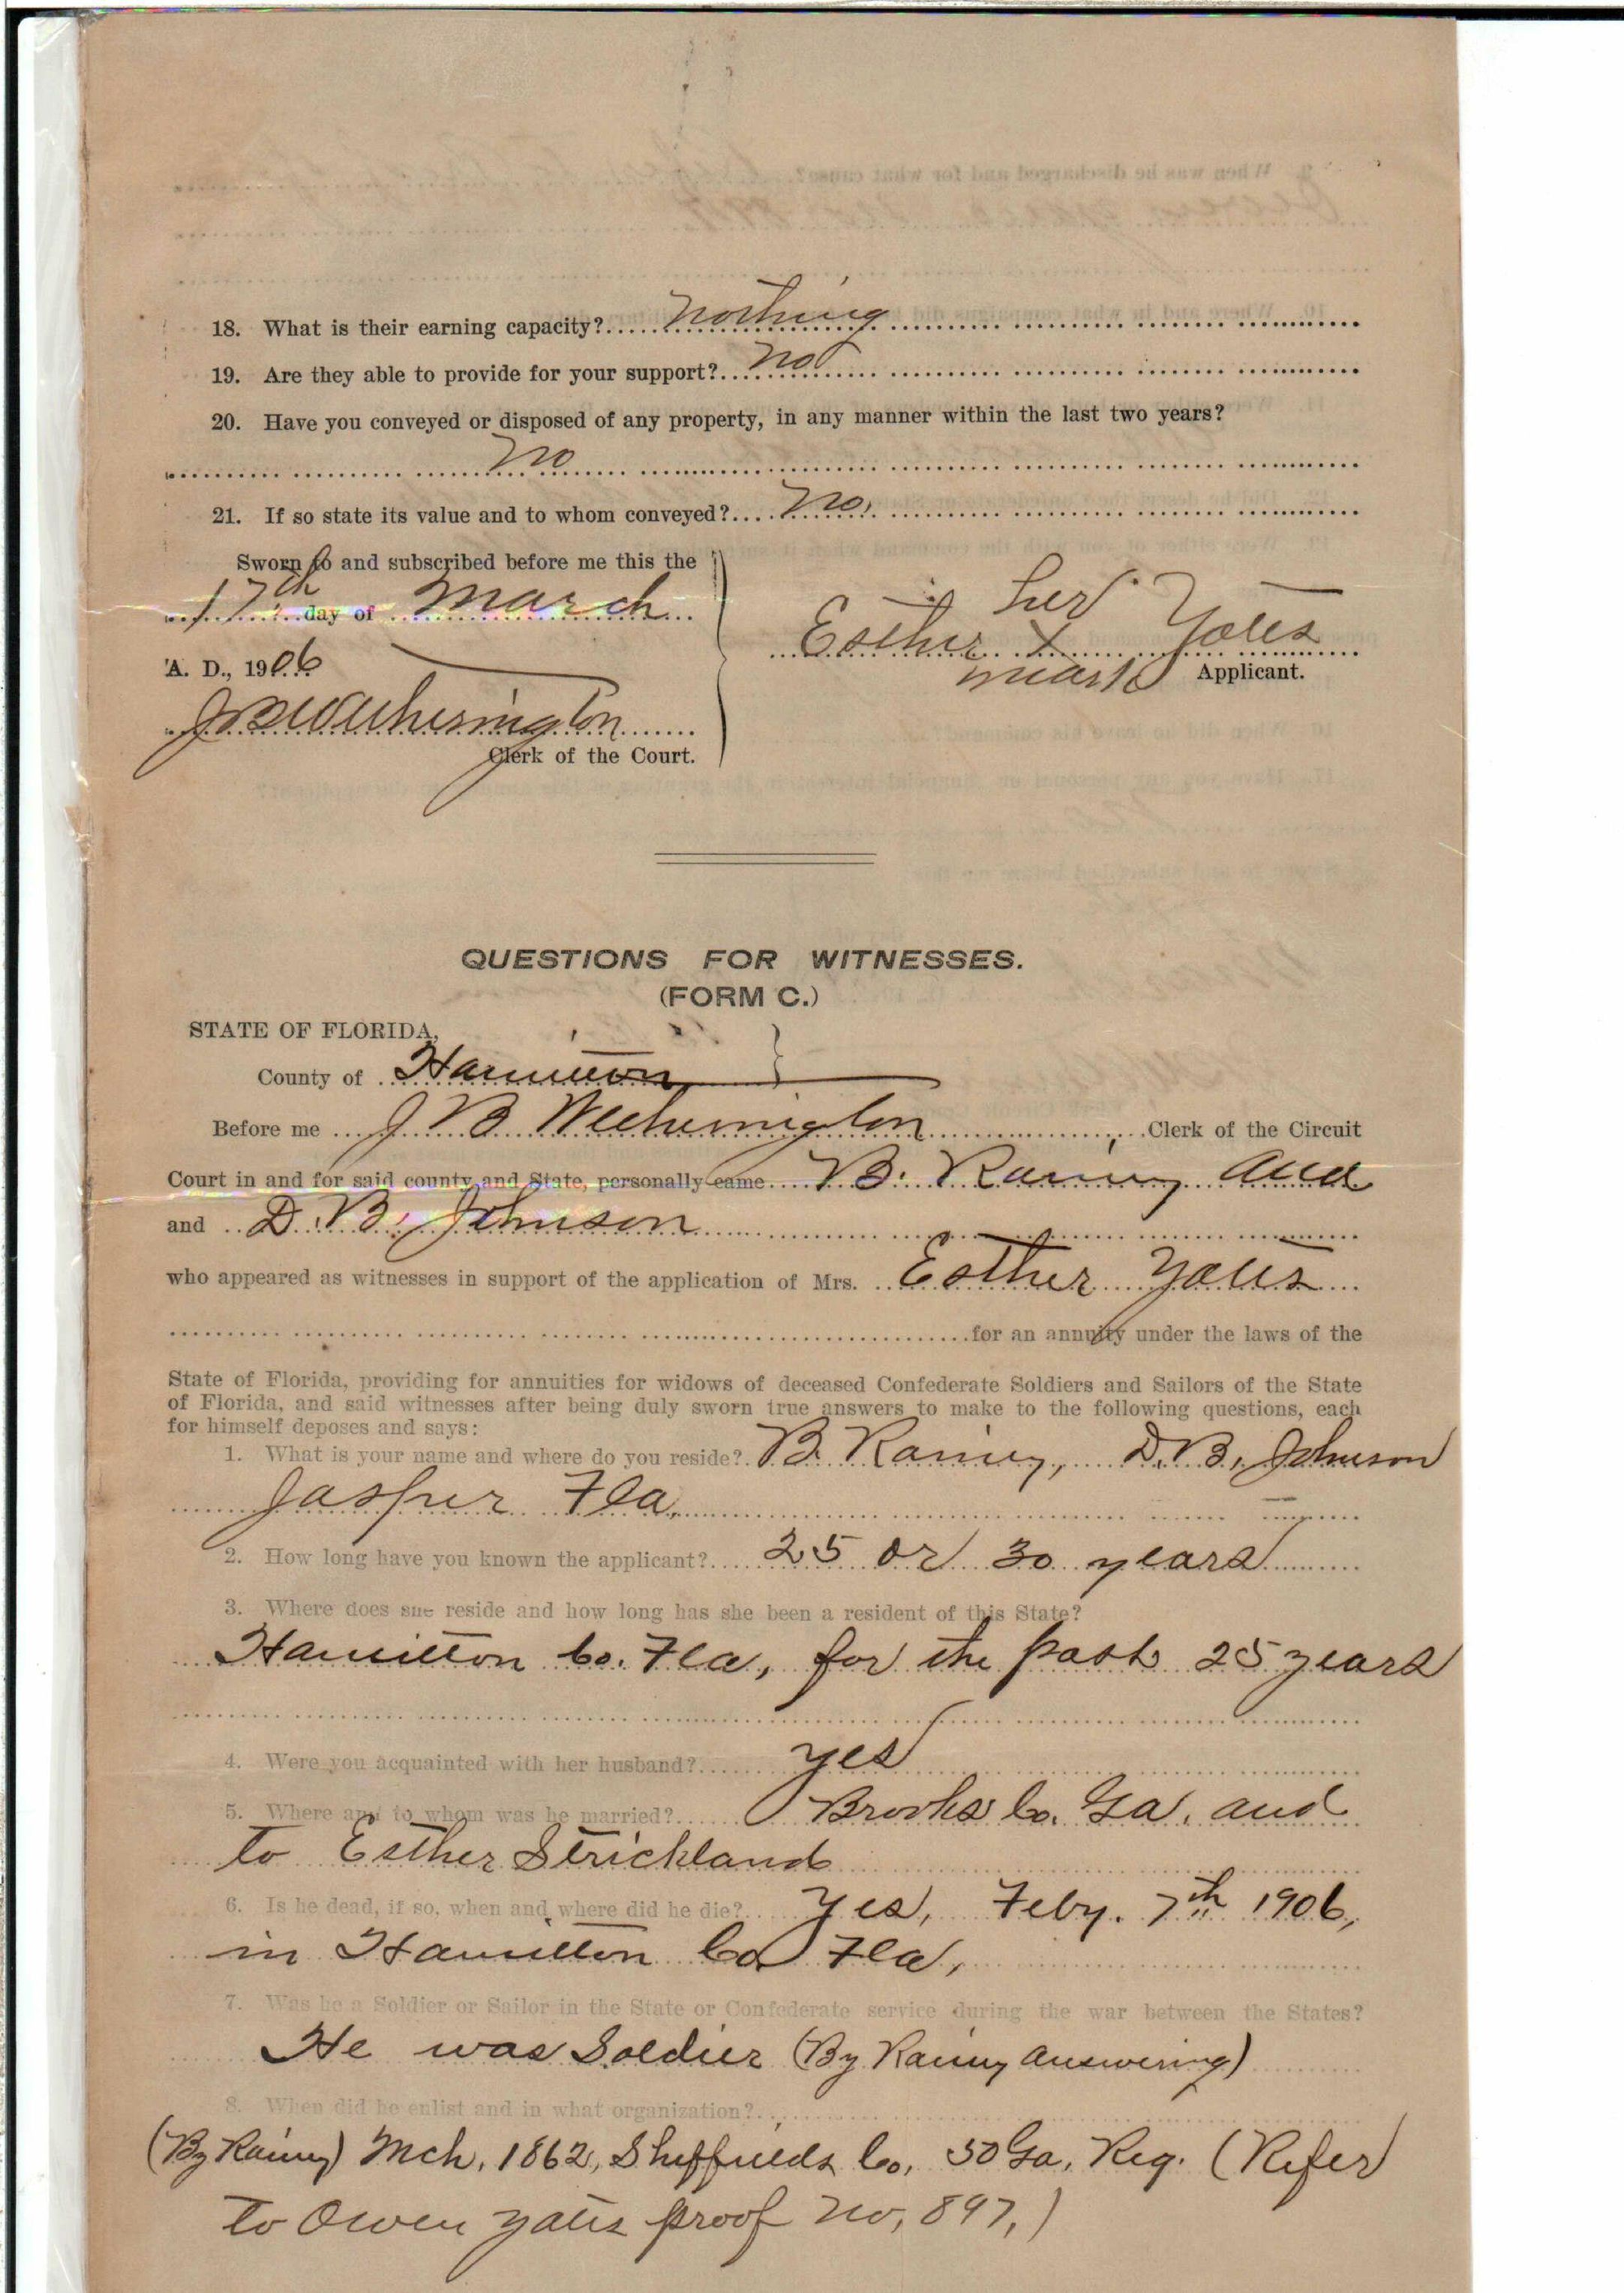 18. What is their earning capacity? Nothing
19. Are they able to provide for your support? No
20. Have you conveyed or disposed of any property, in any manner within the last two years?
No
21. If so state its value and to whom conveyed? No.
Sworn to and subscribed before me this the
17th day of March
A. D., 1906
J B Witherington
Clerk of the Court.
her
Esther X Yates
mark Applicant.
QUESTIONS FOR WITNESSES.
(FORM C.)
STATE OF FLORIDA,
County of Hamilton
Before me J B Witherington Clerk of the Circuit
Court in and for said county and State, personally came B. Rainey and
and D. B. Johnson
who appeared as witnesses in support of the application of Mrs. Esther Yates
for an annuity under the laws of the
State of Florida, providing for annuities for widows of deceased Confederate Soldiers and Sailors of the State
of Florida, and said witnesses after being duly sworn true answers to make to the following questions, each
for himself deposes and says:
1. What is your name and where do you reside? B. Rainey, D. B. Johnson
Jasper Fla.
2. How long have you known the applicant? 25 or 30 years
3. Where does she reside and how long has she been a resident of this State?
Hamilton Co. Fla, for the past 25 years
4. Were you acquainted with her husband? yes
5. Where and to whom was he married? Brooks Co. Ga. and
to Esther Strickland
6. Is he dead, if so, when and where did he die? Yes, Feby. 7th 1906,
in Hamilton Co Fla,
7. Was he a Soldier or Sailor in the State or Confederate service during the war between the States?
He was Soldier (By Rainey answering)
8. When did he enlist and in what organization?
(By Rainey) Mch. 1862, Sheffields Co. 50 Ga. Reg. (Refer
to Owen Yates proof No, 897,)